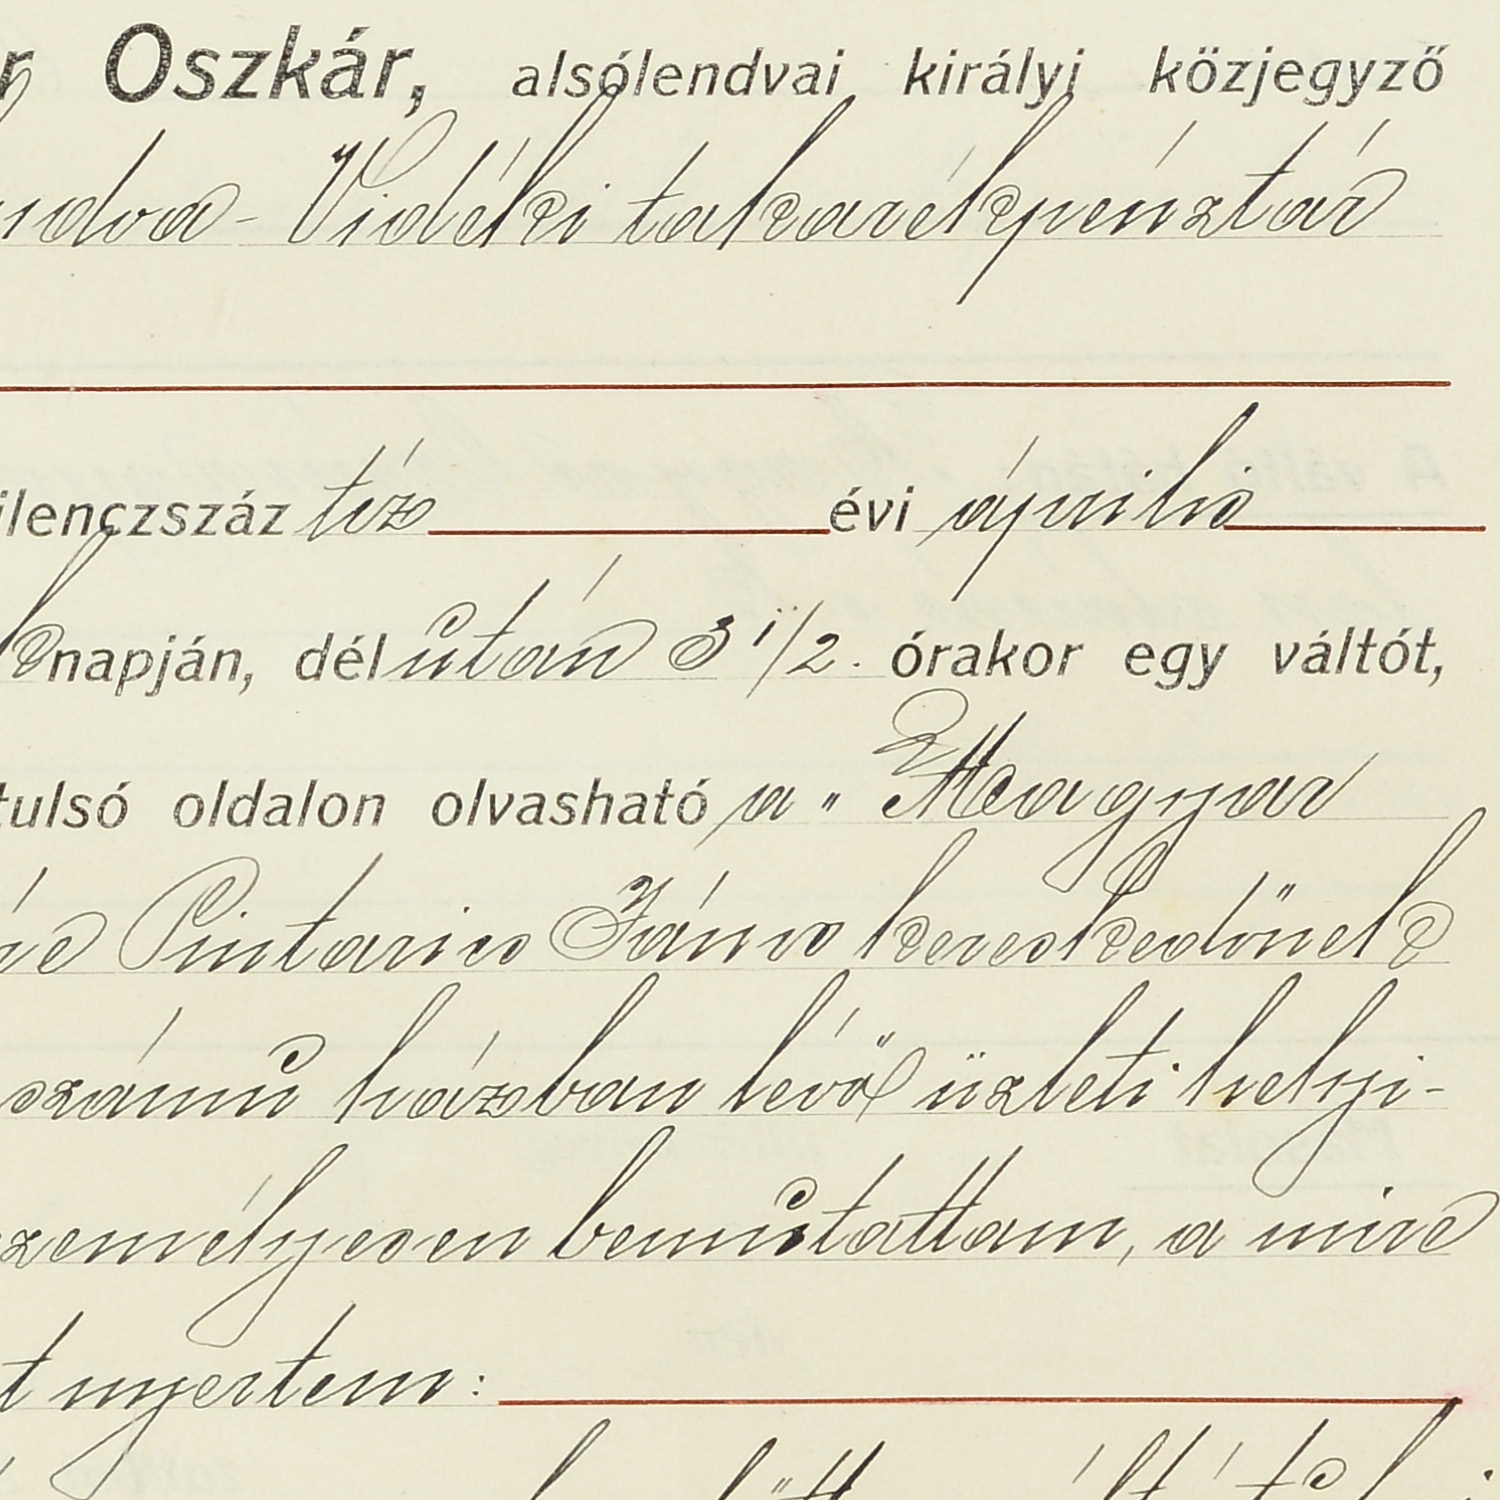 r Oszkár, alsólendvai királyi közjegyző
ndva - Vidéki takarékpénztár
ilenczszáz tíz évi április
napján, délután 3 1/2. órakor egy váltót,
tulsó oldalon olvasható a " Magyar
Pintarics János kereskedőnek
számú házban lévő üzleti helyi-
zemélyesen bemutattam, a mire
t nyertem: